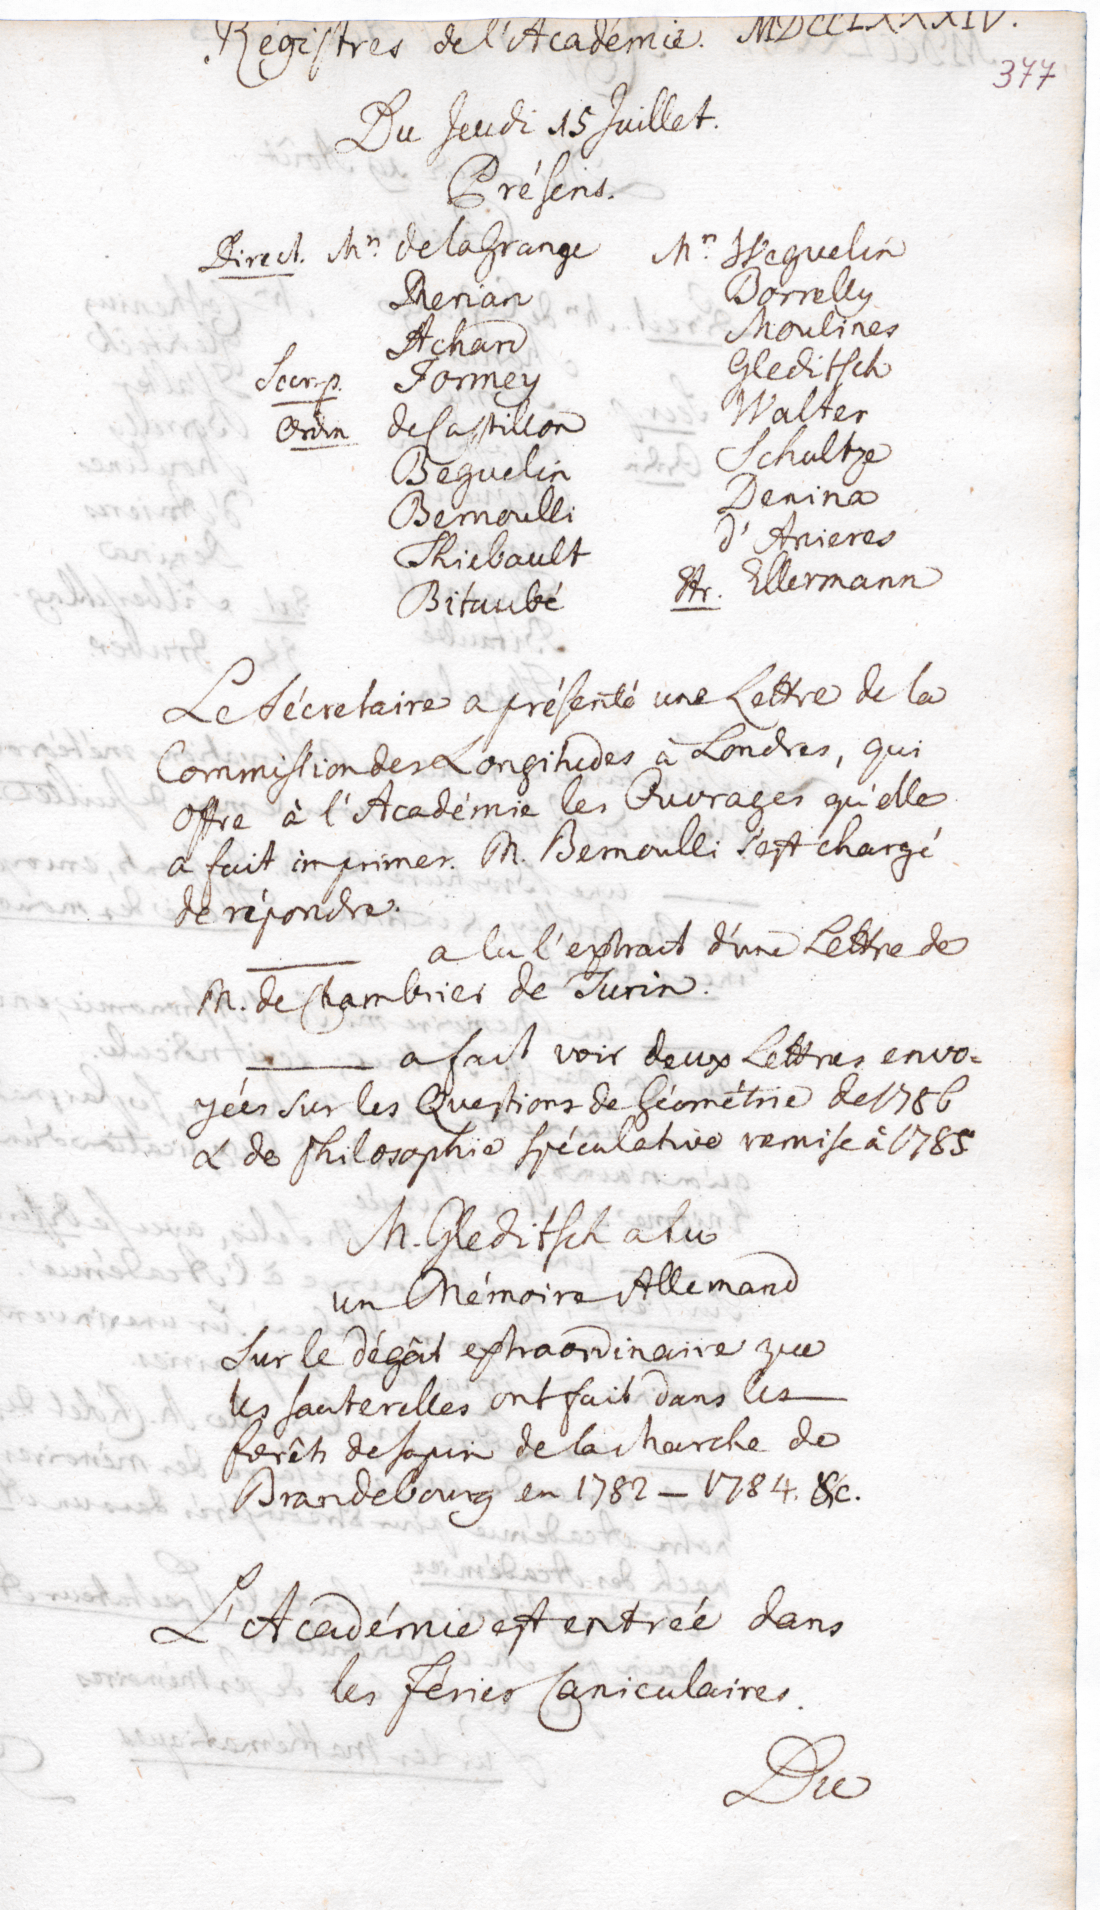 Régistres de l'Académie. MDCCLXXXIV.
377
Du Jeudi 15 Juillet.
Présens.
Direct. Mrs. de la Grange
Merian
Achard
Secr. p. Formey
Ordin de Castillon
Beguelin
Bernoulli
Thiebault
Bitaubé
Mrs. Weguelin
Borrelly
Moulines
Gleditsch
Walter
Schultze
Denina
d'Anieres
Etr. Ellermann
Le Sécretaire a présenté une Lettre de la
Commission des Longitudes à Londres, qui
offre à l'Académie les Ouvrages qu'elle
a fait imprimer. M. Bernoulli s'est chargé
de répondre.
——— a lu l'extrait d'une Lettre de
M. de Chambrier de Turin.
——— a fait voir deux Lettres envo-
yées sur les Questions de Géométrie de 1786
& de Philosophie spéculative remise à 1785
M. Gleditsch a lu
un Mémoire Allemand
sur le dégât extraordinaire que
les sauterelles ont fait dans les
forêts de sapin de la Marche de
Brandebourg en 1782 — 1784. &c.
L'Académie est entrée dans
les Féries Caniculaires.
Du